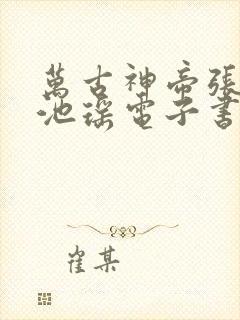 萬古神帝張
池瑤電子書
崔某